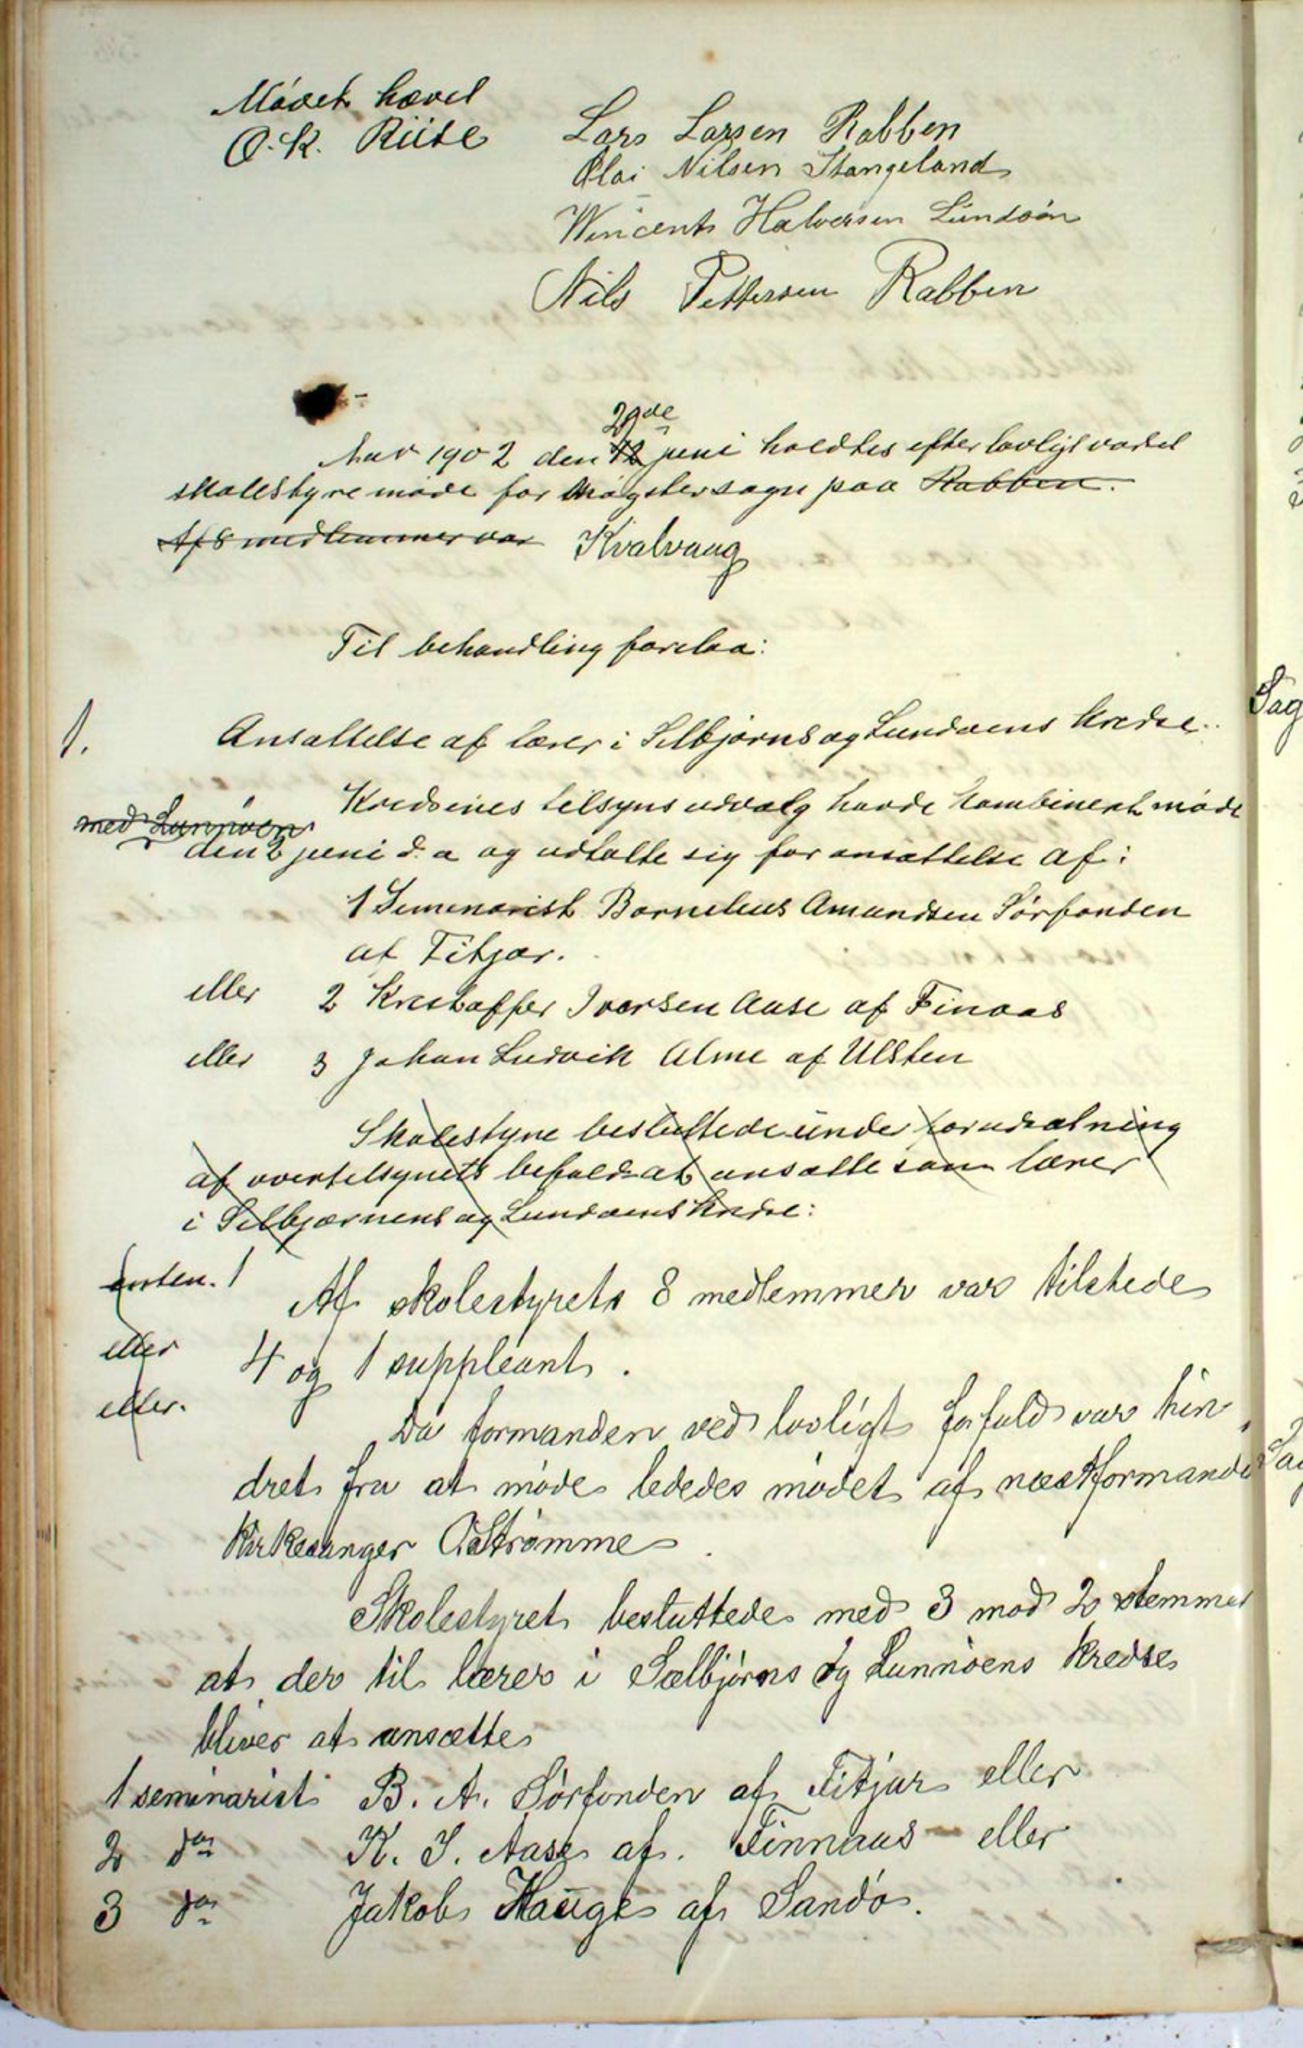 Mødet hævet
O. K. Riise
Lars Larsen Rabben
Olai Nilsen Stangeland
Wincents Halvorsen Lundøen
Nils Pettersen Rabben
29de
Aar 1902 den 12 juni holdtes efter lovligt varsel
skolestyremøde for Møgster sogn paa Rabben.
Af 8 medlemmer var Kvalvaag
Til behandling forelaa:
1. Ansættelse af lærer i Selbjørns og Lundøens kredse.
Kredsenes tilsynsudvalg havde kombinert møde
med Lunnøen
den 2 juni d. a og udtalte sig for ansættelse af:
1 Seminarist Bornelius Amundsen Sørfonden
af Fitjar.
eller 2 Kristoffer Iversen Aase af Finaas
eller 3 Johan Ludvik Alme af Ulsten
Skolestyre besluttede under forudsætning
af overtilsynets befald at ansætte som lærer
i Selbjørnens og Lundøens kredse:
enten. 1
Af skolestyrets 8 medlemmer var tilstede
eller
4 og 1 suppleant.
eller.
Da formanden ved lovligt forfald var hin
dret fra at møde lededes mødet af næstformand
Kirkesanger O Strømme
Skolestyret besluttede med 3 mod 2 stemmer
at der til lærer i Sælbjørns og Lunnøens kredse
bliver at ansætte
1 seminarist B. A. Sørfonden af Fitjar eller
2 do K. I. Aase af. Finnaas eller
3 do Jakob Hauge af Sandø.
Sag